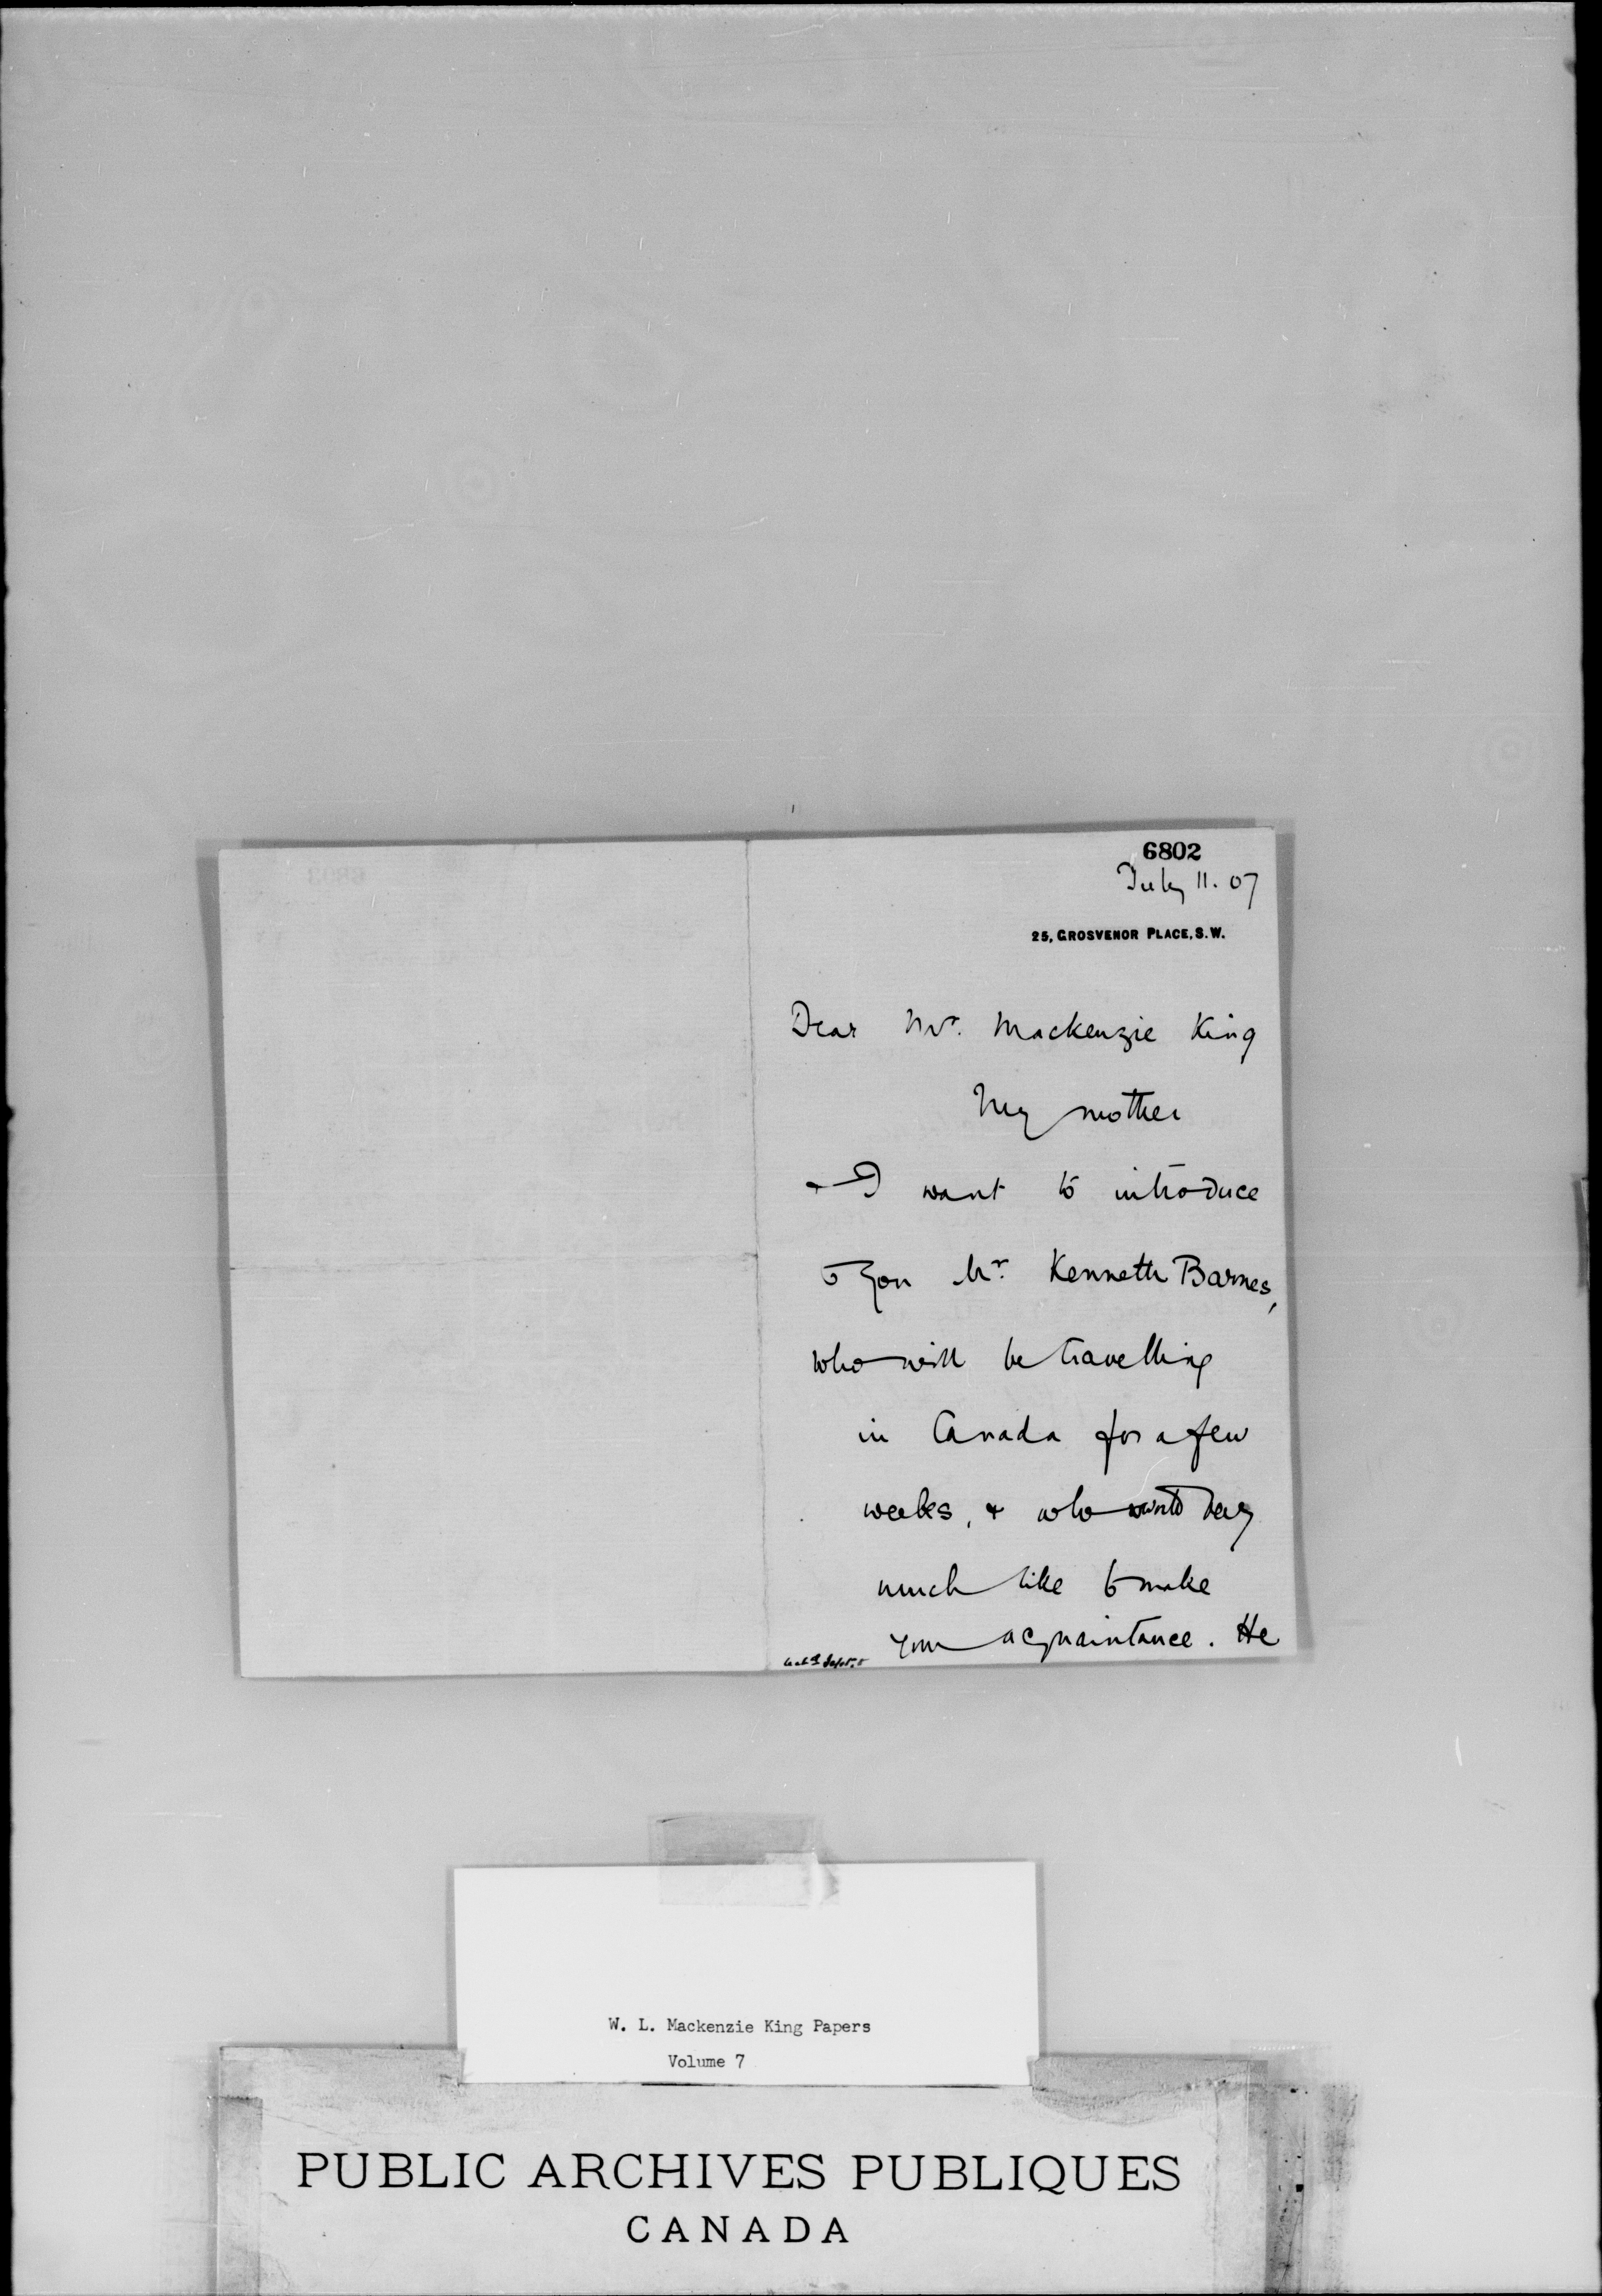 6802
July 11. 07
25, GROSVENOR PLACE, S.W.
Dear Mr. Mackenzie King
My mother
& I want to introduce
to you Mr. Kenneth Barnes,
who will be travelling
in Canada for a few
weeks, & who would very
much like to make
your acquaintance. He
ack'd Sept. 5
W. L. Mackenzie King Papers
Volume 7
PUBLIC ARCHIVES PUBLIQUES
CANADA